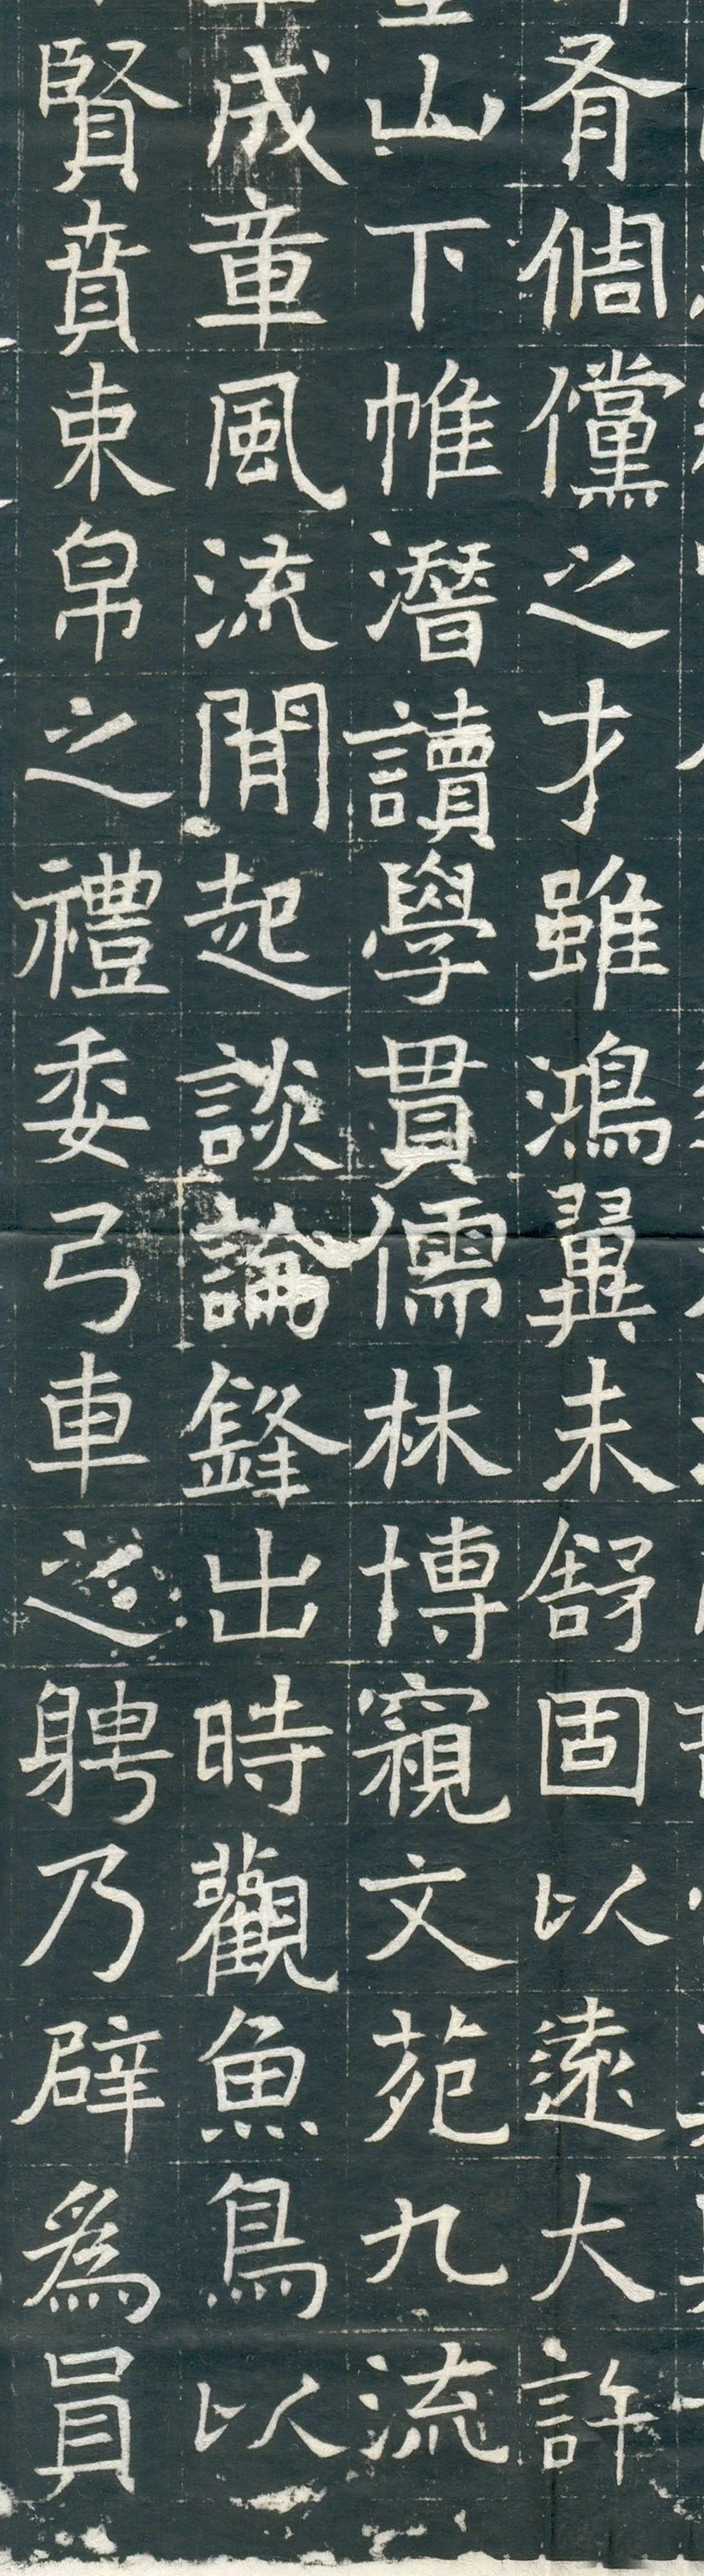 有倜儻之才雖鴻翼未舒固以遠大許
山下帷潛讀學貫儒林博窺文苑九流
成章風流閒起談論鋒出時觀魚鳥以
賢賁束帛之禮委弓車之聘乃辟為員